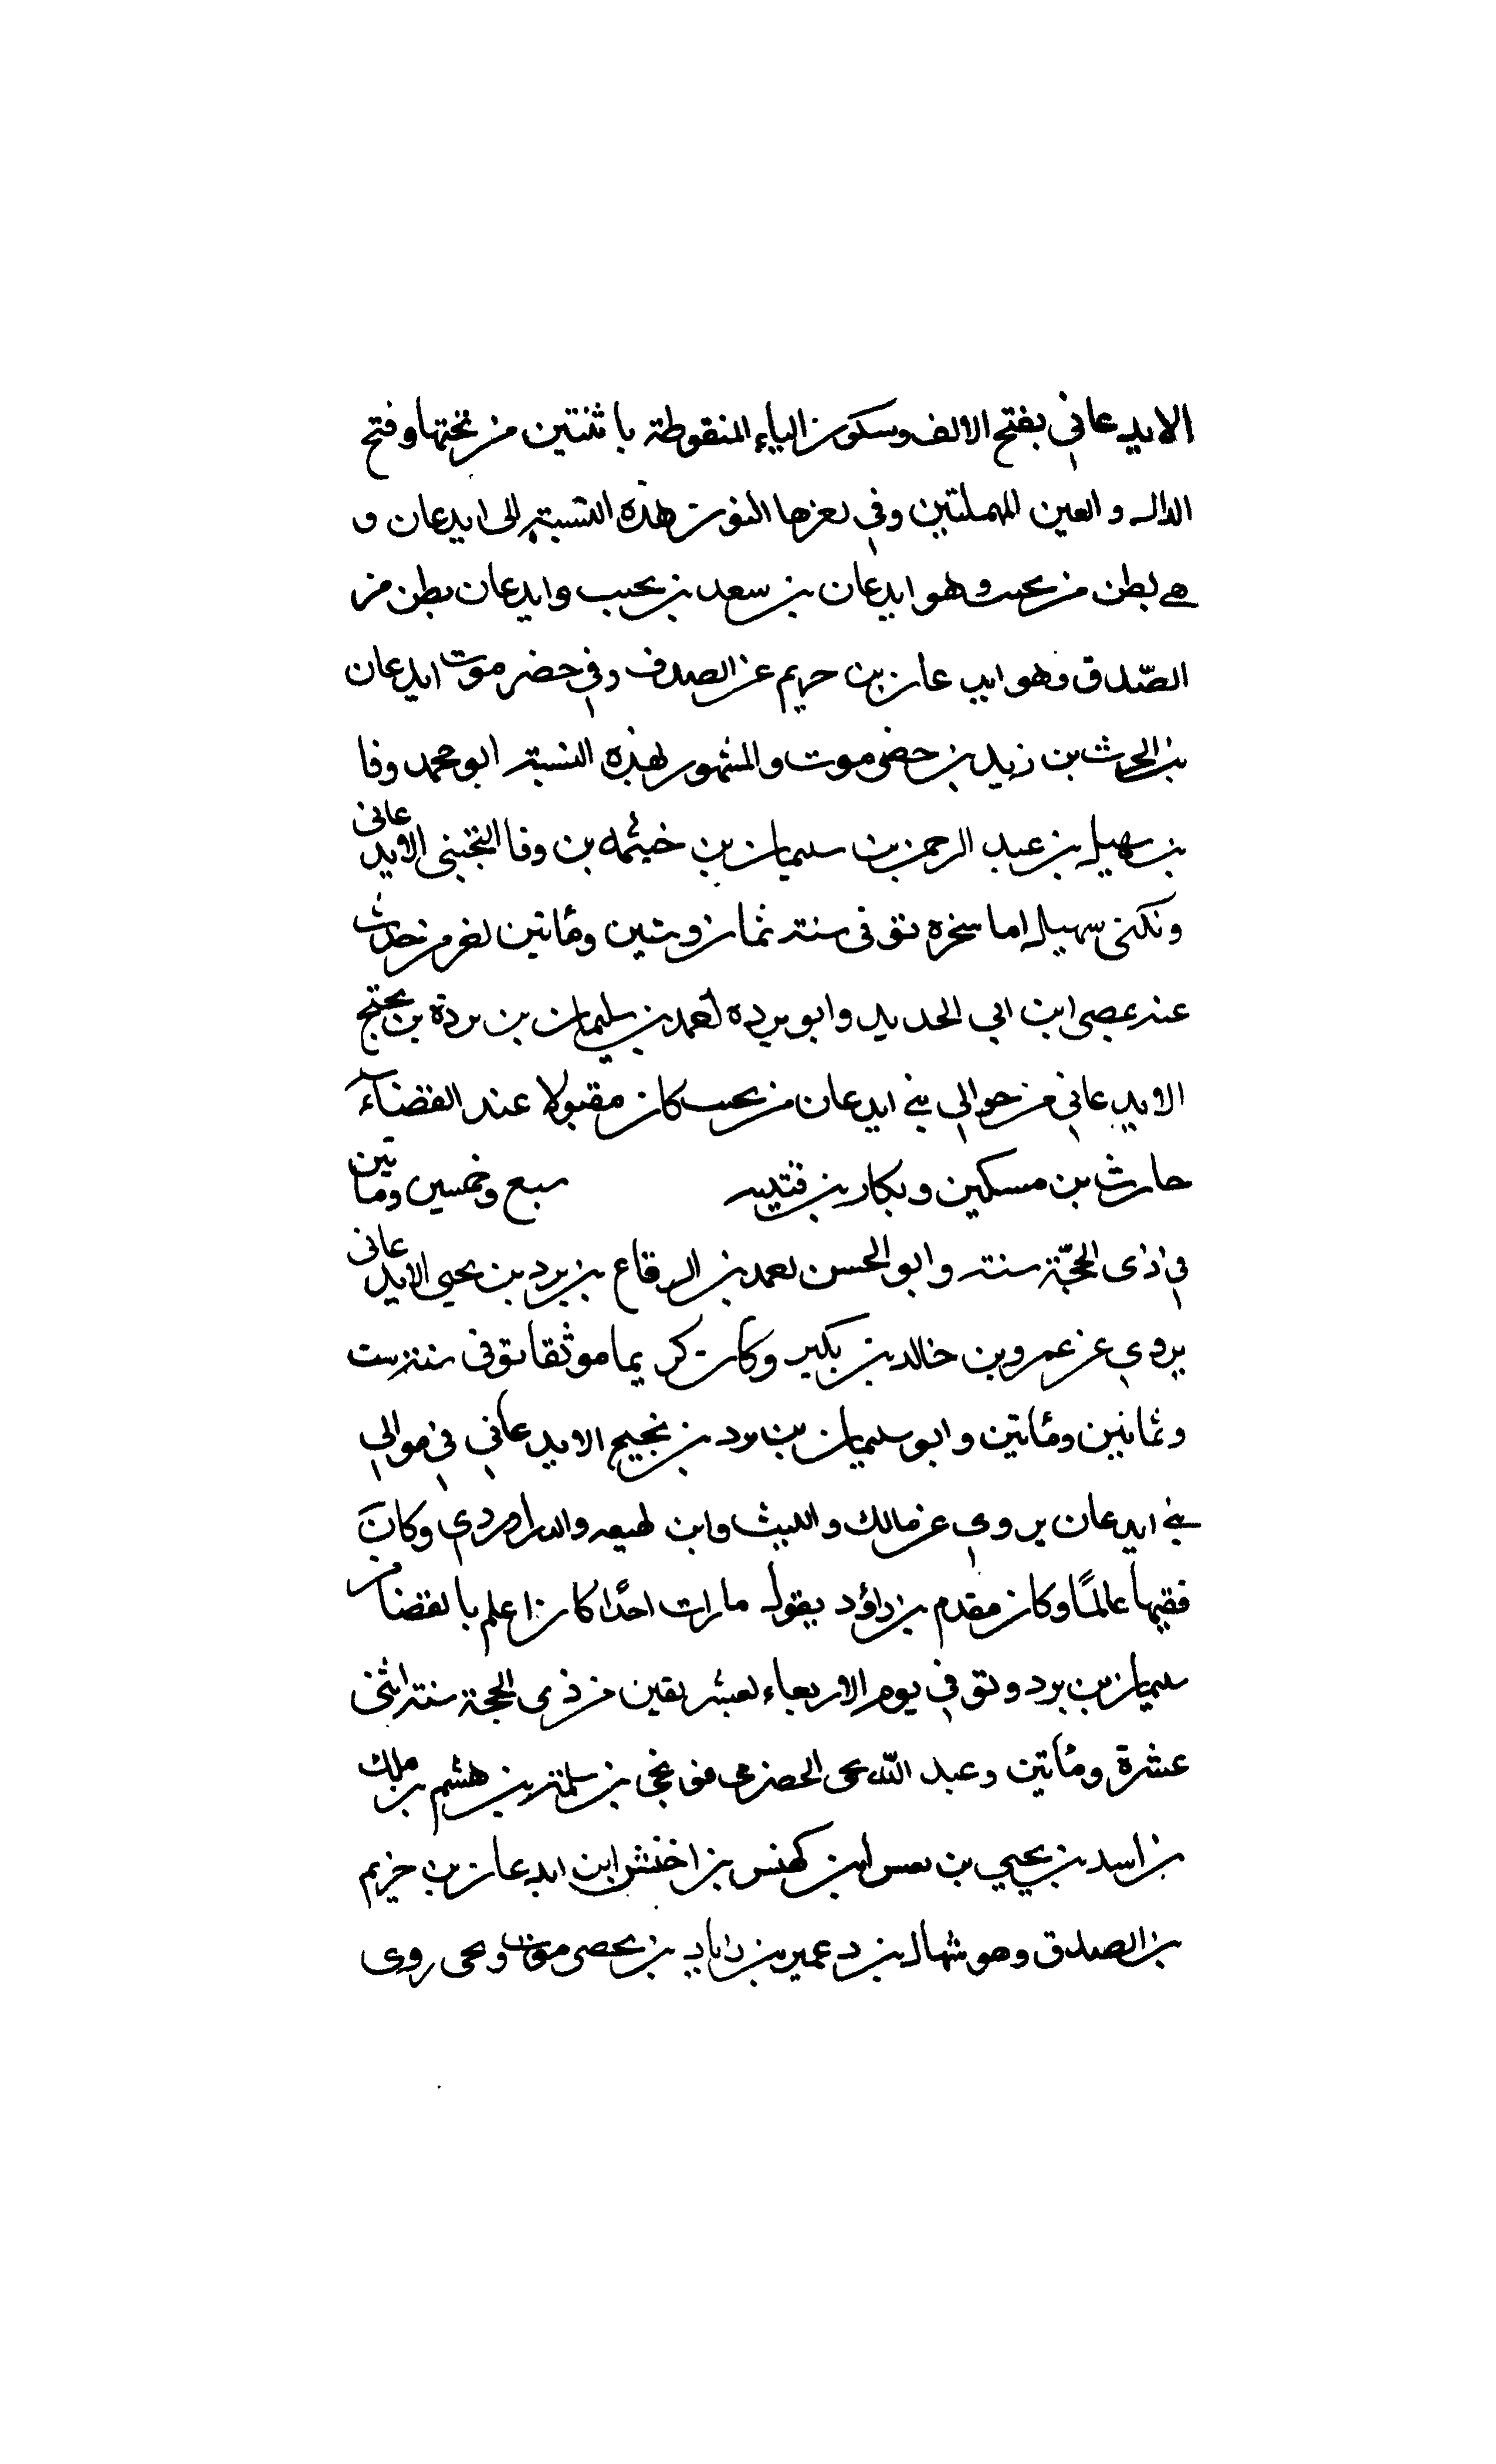 الايدعاني بفتح الالف وسكون الياء المنقوطة باثنتين من تحتها وفتح
الدال والعين المهملتين وفي اخرها النون هذه النسبة الى ايدعان و
هي بطن من تجيب وهو ايدعان بن سعد بن تجيب وايدعان بطن من
الصّدق وهو ايدعان بن حريم عن الصدف وفي حضرموت ايدعان
بن الحرث بن زيد بن حضرموت والمشهور بهذه النسبة ابو محمد وفا
بن سهيل بن عبد الرحمن بن سليمان بن خيثمه بن وفا التجيبي الايدعاني
ونكنى سهيل اما سخره توفى سنة ثمان وستين ومأتين اخر من حدث
عنه بمصر ابن ابي الحديد وابو برده احمد بن سليمان بن بردة بن نجيح
الايدعاني من حوالي بني ايدعان من تجيب كان مقبولا عند القضاة
حارث بن مسكين وبكار بن قتيبه سبع وخمسين ومأتين
في ذى الحجّة سنة وابو الحسن احمد بن الرقاع بن برد بن نجيح الايدعاني
يروي عن عمرو بن خالد بن بكير وكان كريما موثقا توفى سنة ست
وثمانين ومأتين وابو سليمان بن برد بن نجيح الايدعاني في موالي
بني ايدعان يروي عن مالك والليث وابن لهيعه والدراوردي وكان
فقيها عالمًا وكان مقدم بن داؤد يقول ما رات احدًا كان اعلم بالقضا من
سليمان بن برد وتوفي يوم الاربعاء لعشر بقين من ذى الحجة سنة اثنى
عشرة ومأتين وعبد الله بن نجى بن سلمة بن هشم بن ملك
بن اسد بن يحيي بن ابن كهنس بن اخنش ابن ايدعان بن حزيم
بن الصدق وهو شهال بن دعمير بن زياد بن حضرموت ونجى روى